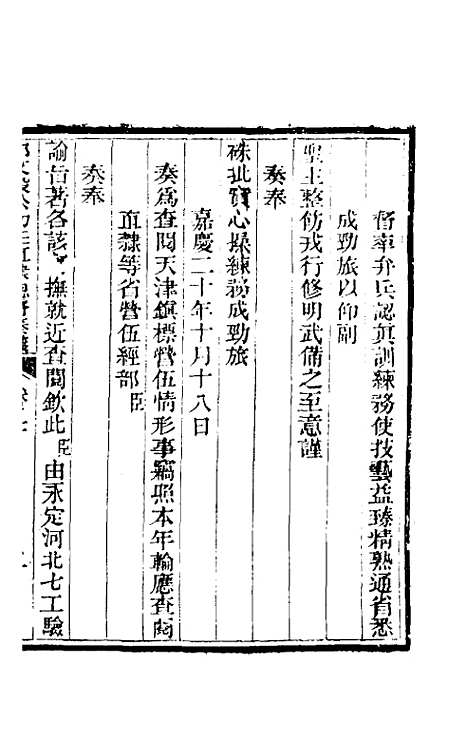 督率弁兵認眞訓練務使技藝益臻精熟通省悉
成勁旅以仰副
聖主整飭戎行修明武備之至意謹
奏奉
硃批實心操練務成勁旅
嘉慶二十年十月十八日
奏爲查閱天津鎭標營伍情形事竊照本年輪應查閱
直隸等省營伍經部臣
奏奉
諭旨著各該撫就近查閱欽此臣由永定河北七工驗